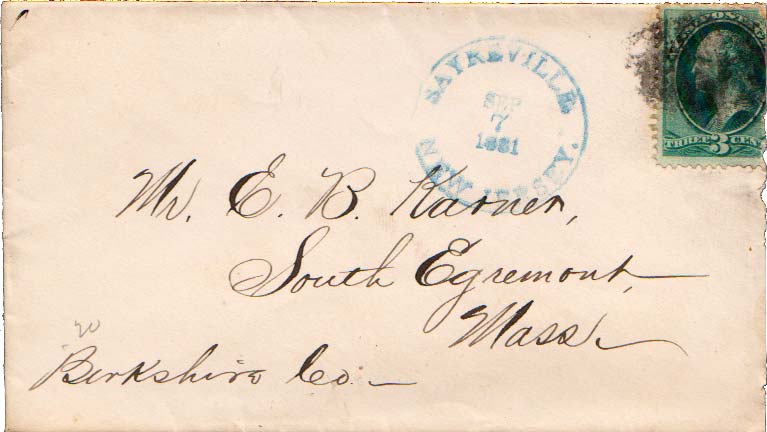 SAYREVILLE
SEP
7
1881
NEW JERSEY.
THREE 3 CENT
Mr. E. B. Karner,
South Egremont,
Mass.
Berkshire Co.